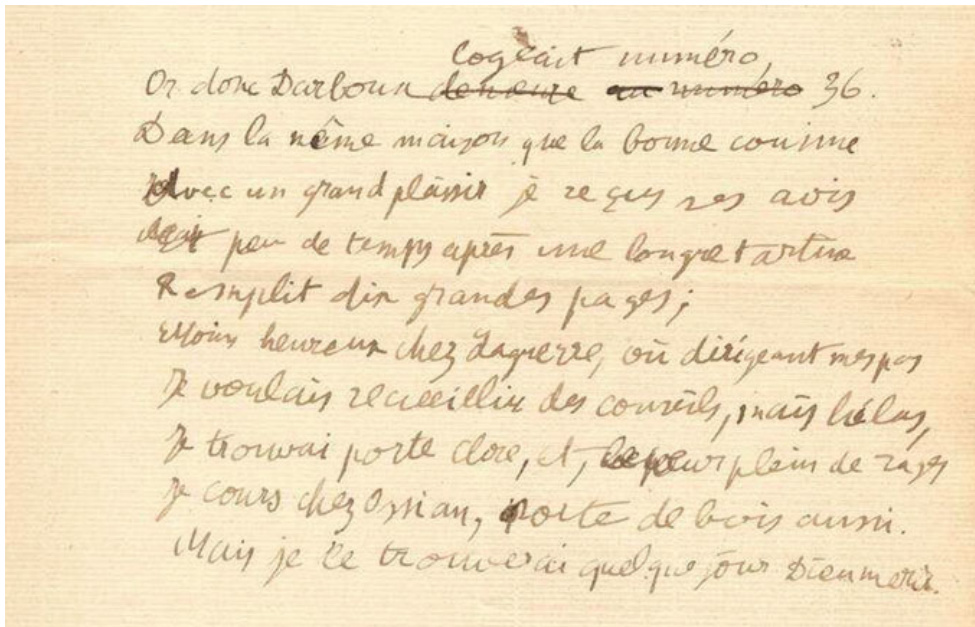 logeait numéro,
Or donc Darboux demeure au numéro 36.
Dans la même maison que la bonne cousine
Avec un grand plaisir je reçus ses avis
peu de temps après une longue tartine
Remplit dix grandes pages;
Moins heureux chez Laguerre, où dirigeant mes pas
Je voulais recueillir des conseils, mais hélas,
Je trouvai porte close, et, le cœur plein de rages
Je cours chez Ossian, porte de bois aussi.
Mais je le trouverai quelque jour Dieu merci.